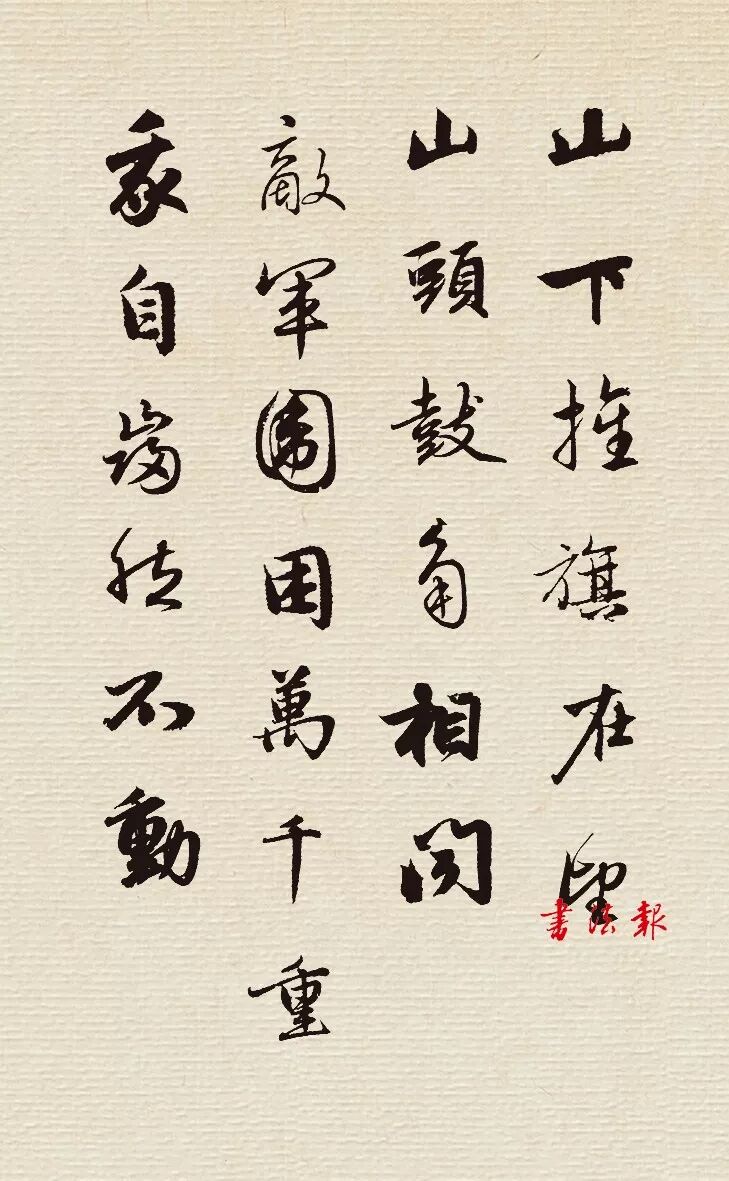 山下旌旗在望
山頭鼓角相聞
敵軍圍困萬千重
我自巋然不動
書法報